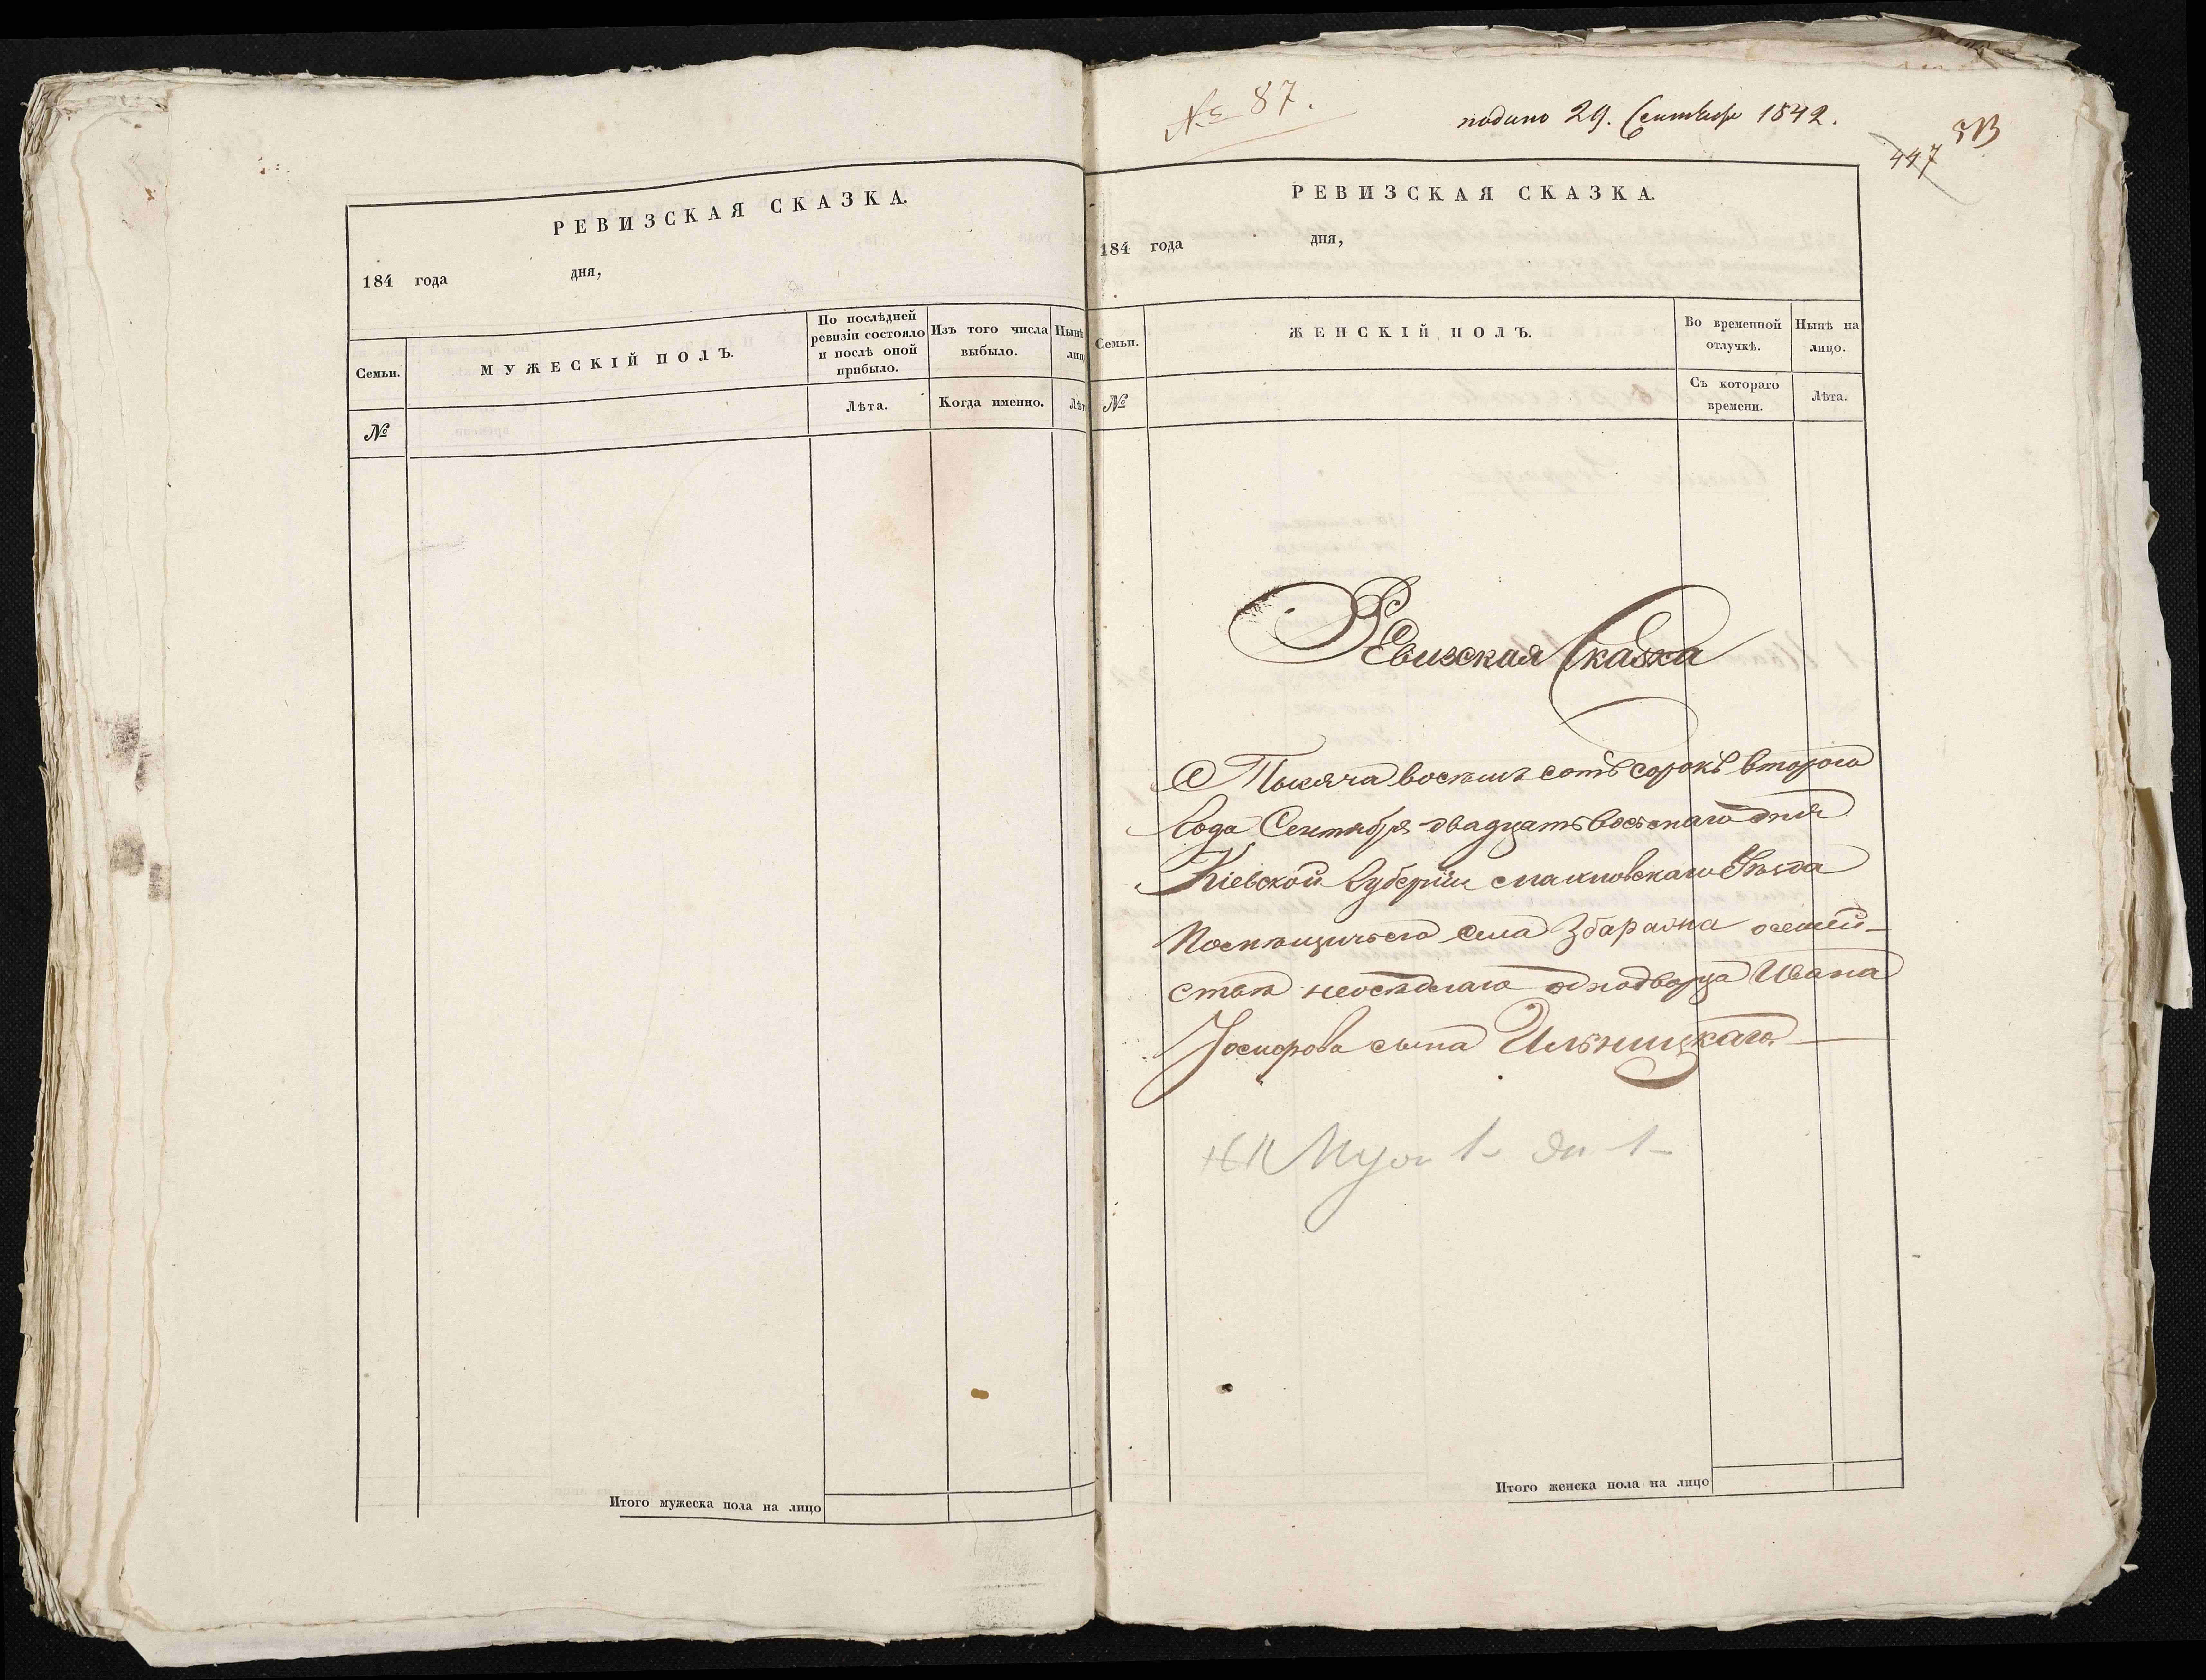 РЕВИЗСКАЯ СКАЗКА.
184 года дня,
Семьи.
МУЖЕСКІЙ ПОЛЪ.
По послѣдней ревизіи состояло и послѣ оной прибыло.
Изъ того числа выбыло.
Нынѣ
лиц
№
Лѣта.
Когда именно.
Лѣт
Итого мужеска пола на лицо
№ 87.
подано 29. Сентября 1842.
447
РЕВИЗСКАЯ СКАЗКА.
184 года дня,
Семьи.
ЖЕНСКІЙ ПОЛЪ.
Во временной отлучкѣ.
Нынѣ на лицо.
№
Съ котораго времени.
Лѣта.
Ревизская Сказка
Тысяча восемь сотъ сорокъ втораго
года Сентября двадцать восьмаго дня
Кіевской Губерніи Уѣзда
Помѣщичьего села Збаражка о семей-
ствѣ неосѣдлаго однодворца Ивана
Іосифова сына Ильницкаго
Муж 1
Итого женска пола на лицо